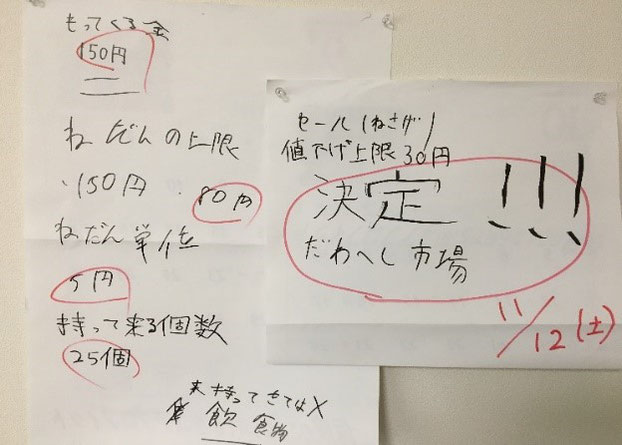 もってくる金
150円
ねだんの上限
・150円 ・80円
ねだん単位
5円
持って来る個数
25個
持ってきてはX
飲 食物
セール(ねさげ)
値下げ上限30円
決定!!!
だわへし市場
11/12(土)